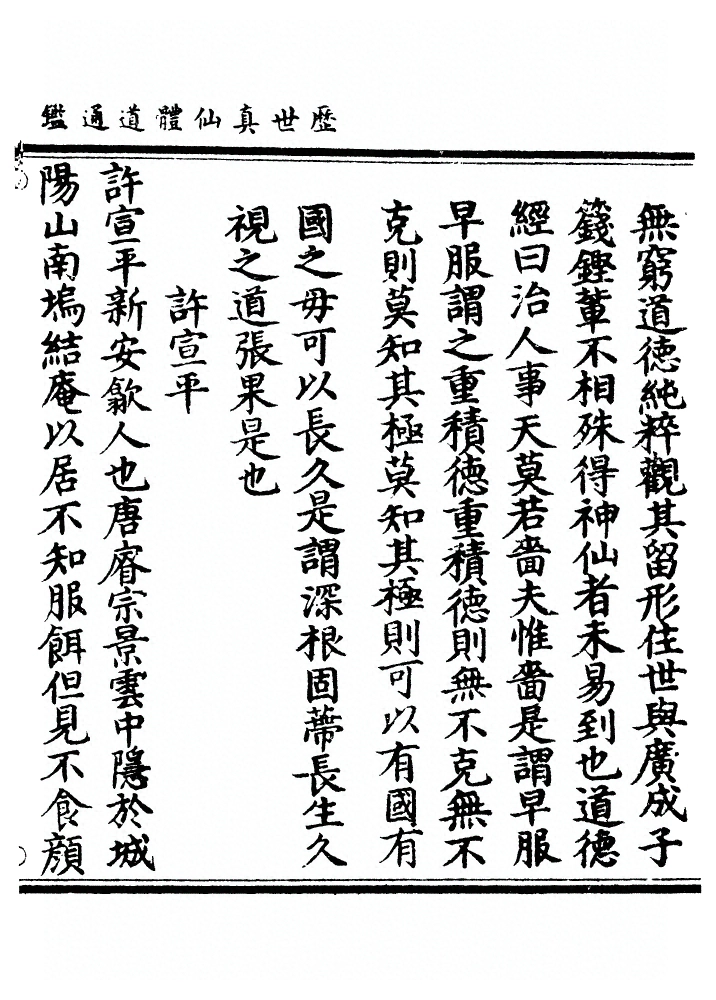 歷世真仙體道通鑑
無窮道德純粹觀其留形住世與廣成子
籛鏗輩不相殊得神仙者未易到也道德
經曰治人事天莫若嗇夫惟嗇是謂早服
早服謂之重積德重積德則無不克無不
克則莫知其極莫知其極則可以有國有
國之毋可以長久是謂深根固蔕長生久
視之道張果是也
許宣平
許宣平新安歙人也唐睿宗景雲中隱於城
陽山南塢結庵以居不知服餌但見不食顔